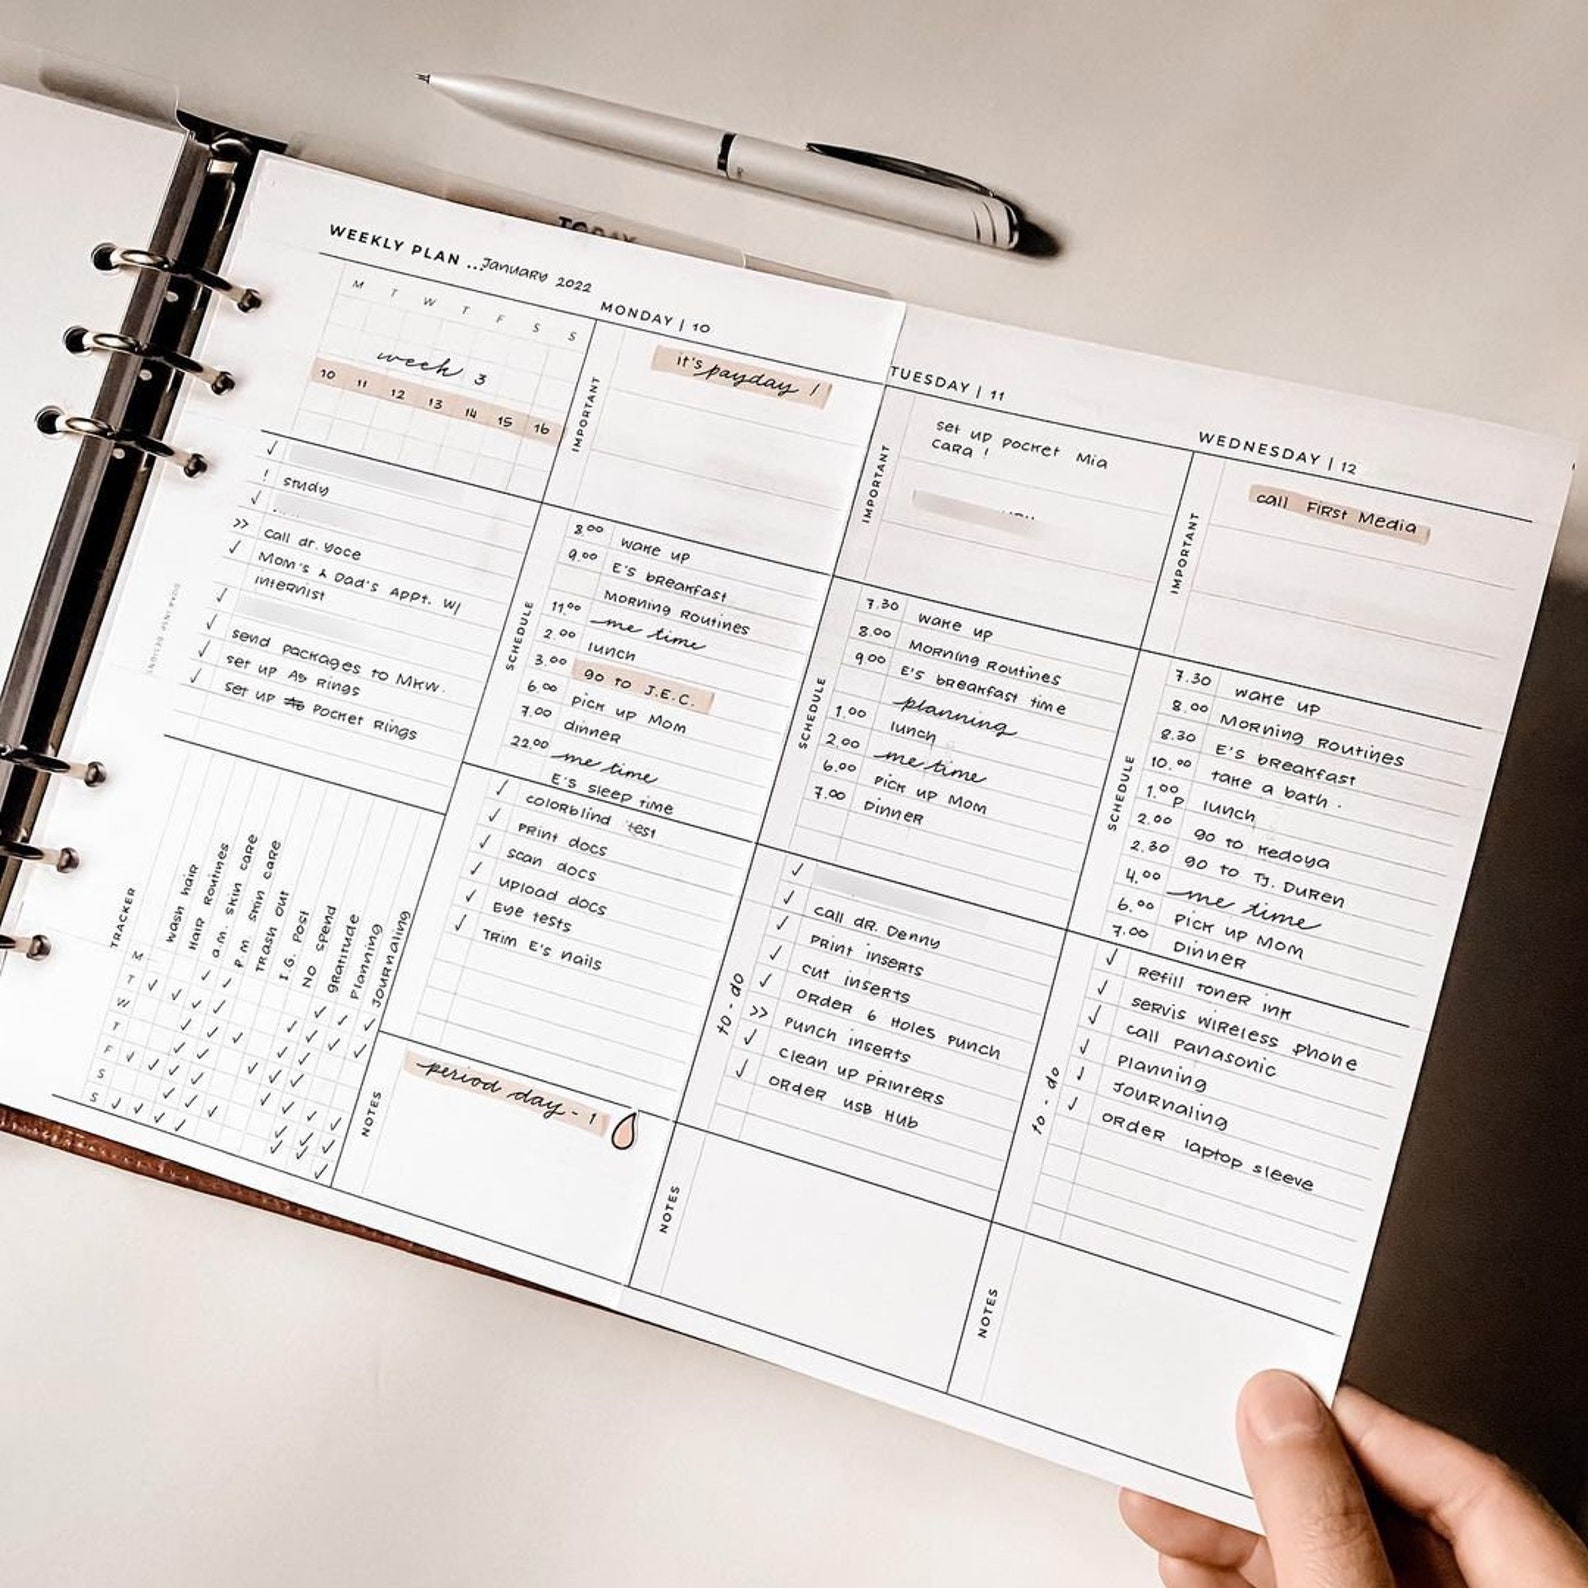 TODAY
WEEKLY PLAN ... January 2022
M T W T F S S
week 3
10 11 12 13 14 15 16
✓
! study
✓
>> call dr. yoce
✓ Mom's & Dad's Appt. w/
internist
✓
✓ send packages to MKW.
✓ set up A5 Rings
✓ set up Pocket Rings
TRACKER
wash hair
Hair Routines
a.m. skin care
P.M. skin care
Trash out
I.G. Post
No spend
gratitude
Planning
Journaling
M
T
W
T
F
S
S
MONDAY | 10
IMPORTANT
it's payday !
SCHEDULE
8.00 wake up
9.00 E's breakfast
Morning Routines
11.00 me time
2.00 lunch
3.00 go to J.E.C.
6.00 pick up Mom
7.00 dinner
22.00 me time
E's sleep time
✓ colorblind test
✓ Print docs
✓ scan docs
✓ upload docs
✓ Eye tests
✓ Trim E's nails
NOTES
period day - 1
TUESDAY | 11
IMPORTANT
set up pocket Mia
Cara !
SCHEDULE
7.30 wake up
8.00 Morning Routines
9.00 E's breakfast time
planning
1.00 lunch
2.00 me time
6.00 pick up Mom
7.00 Dinner
to-do
✓
✓ call dr. Denny
✓ Print inserts
✓ cut inserts
✓ order 6 Holes Punch
>> Punch inserts
✓ clean up Printers
✓ order USB Hub
NOTES
WEDNESDAY | 12
IMPORTANT
call First Media
SCHEDULE
7.30 wake up
8.00 Morning Routines
8.30 E's breakfast
10.00 take a bath.
1.00 P lunch
2.00 go to Kedoya
2.30 go to Tj. Duren
4.00 me time
6.00 Pick up Mom
7.00 Dinner
to-do
✓ Refill toner ink
✓ servis wireless phone
✓ call Panasonic
✓ Planning
✓ Journaling
✓ order laptop sleeve
NOTES